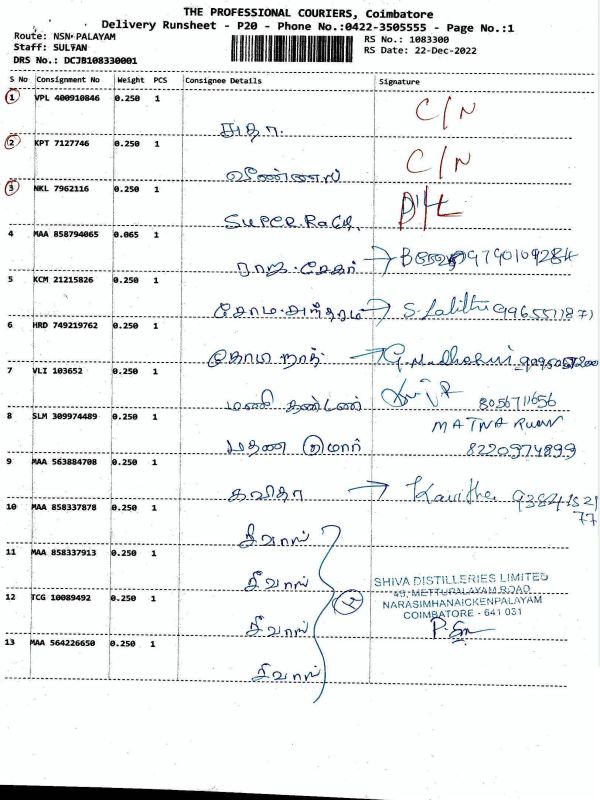 THE PROFESSIONAL COURIERS, Coimbatore
Delivery Runsheet - P20 - Phone No.:0422-3505555 - Page No.:1
Route: NSN PALAYAM
Staff: SULTAN
DRS No.: DCJB108330001
RS No.: 1083300
RS Date: 22-Dec-2022
S No Consignment No Weight PCS Consignee Details Signature
1 VPL 400910846 0.250 1 C/N
சுதா
2 KPT 7127746 0.250 1 C/N
3 NKL 7962116 0.250 1 D/L
SUPER.
4 MAA 858794065 0.065 1
9790109284
5 KCM 21215826 0.250 1
S. Lalitha 9965511871
6 HRD 749219762 0.250 1
7 VLI 103652 0.250 1
மணி கண்டன் 8056711656
8 SLM 309974489 0.250 1
மதன குமார் 8220974899
9 MAA 563884708 0.250 1
கவிதா Kavitha
10 MAA 858337878 0.250 1
சிவாஸ்
11 MAA 858337913 0.250 1
சிவாஸ்
12 TCG 10089492 0.250 1
சிவாஸ்
13 MAA 564226650 0.250 1
சிவாஸ்
SHIVA DISTILLERIES LIMITED
49, METTUPALAYAM ROAD
NARASIMHANAICKENPALAYAM
COIMBATORE - 641 031